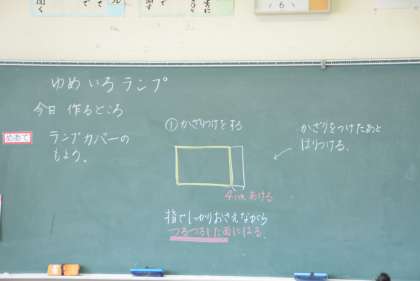 ゆめいろランプ
今日 作るところ
めあて
ランプカバーの
もよう。
①かざりつけをする
かざりをつけたあと
はりつける。
4cmあける
指でしっかりおさえながら
つるつるした面にはる。